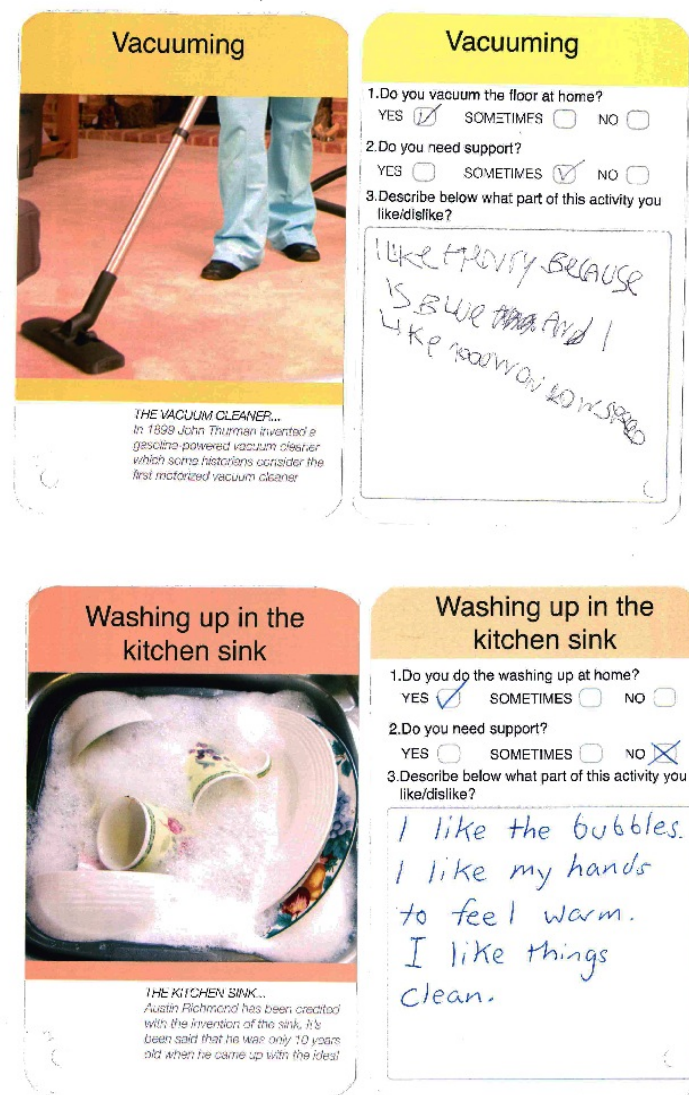 Vacuuming
THE VACUUM CLEANER...
In 1899 John Thurman invented a
gasoline-powered vacuum cleaner
which some historians consider the
first motorized vacuum cleaner
Vacuuming
1.Do you vacuum the floor at home?
YES SOMETIMES NO
2.Do you need support?
YES SOMETIMES NO
3.Describe below what part of this activity you
like/dislike?
I LIKe HENRY BeCAUSe
IS BLUe And I
LIKe ON LOW SPeeD
Washing up in the
kitchen sink
THE KITCHEN SINK...
Austin Richmond has been credited
with the invention of the sink. It's
been said that he was only 10 years
old when he came up with the idea!
Washing up in the
kitchen sink
1.Do you do the washing up at home?
YES SOMETIMES NO
2.Do you need support?
YES SOMETIMES NO
3.Describe below what part of this activity you
like/dislike?
I like the bubbles.
I like my hands
to feel warm.
I like things
clean.